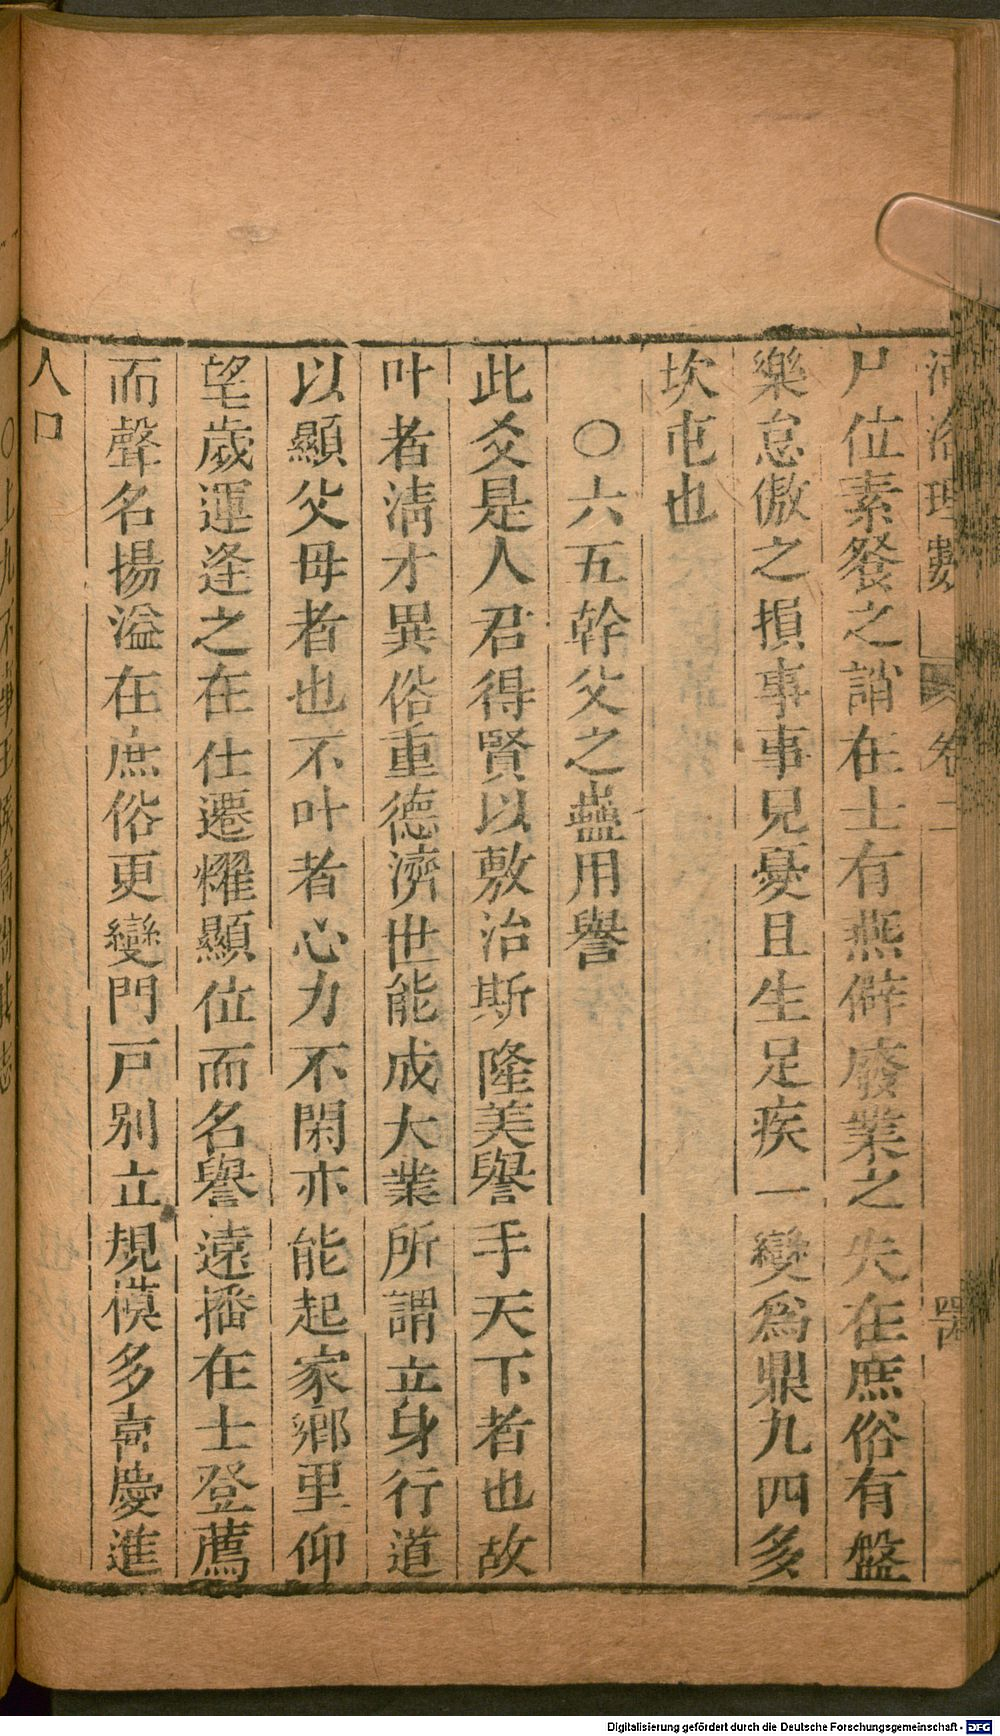 河洛理數 卷二
尸位素餐之誚在士有燕僻廢業之失在庶俗有盤
樂怠傲之損事事見憂且生足疾一變爲鼎九四多
坎屯也
○六五幹父之蠱用譽
此爻是人君得賢以敷治斯隆美譽于天下者也故
叶者淸才異俗重德濟世能成大業所謂立身行道
以顯父母者也不叶者心力不閑亦能起家鄉里仰
望歲運逢之在仕遷耀顯位而名譽遠播在士登薦
而聲名揚溢在庶俗更變門戸別立規模多喜慶進
人口
○上九不事王侯高尚其志
Digitalisierung gefördert durch die Deutsche Forschungsgemeinschaft - DFG